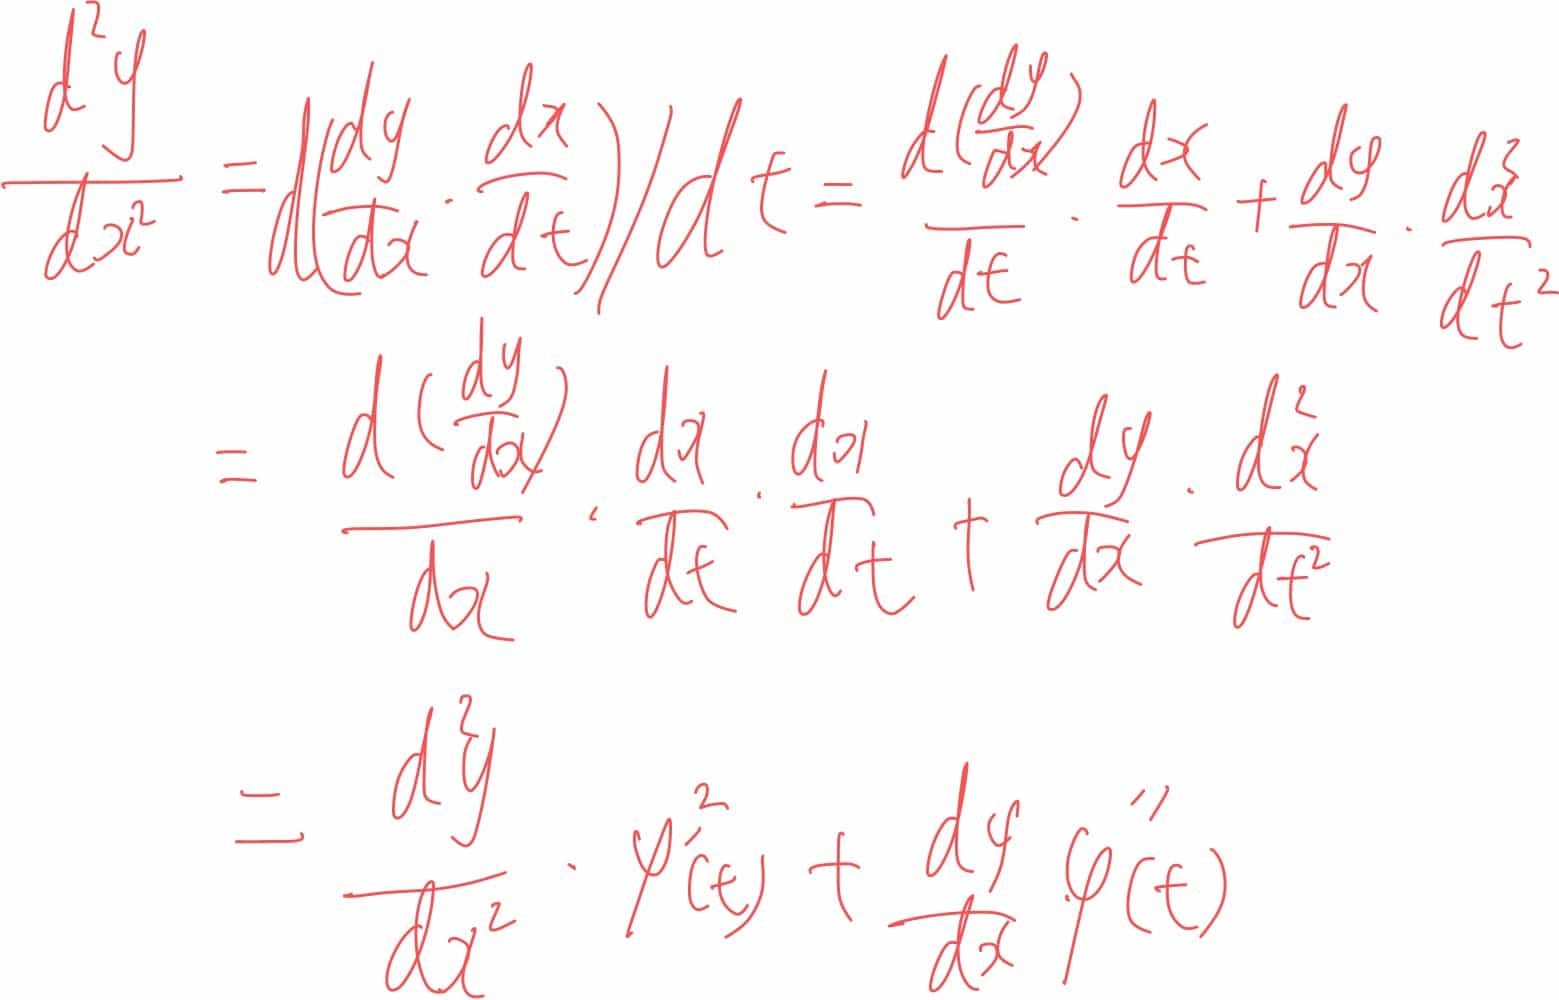 d²y/dx² = d(dy/dx · dx/dt)/dt = d(dy/dx)/dt · dx/dt + dy/dx · d²x/dt²
= d(dy/dx)/dx · dx/dt · dx/dt + dy/dx · d²x/dt²
= d²y/dx² · φ'²(t) + dy/dx φ''(t)